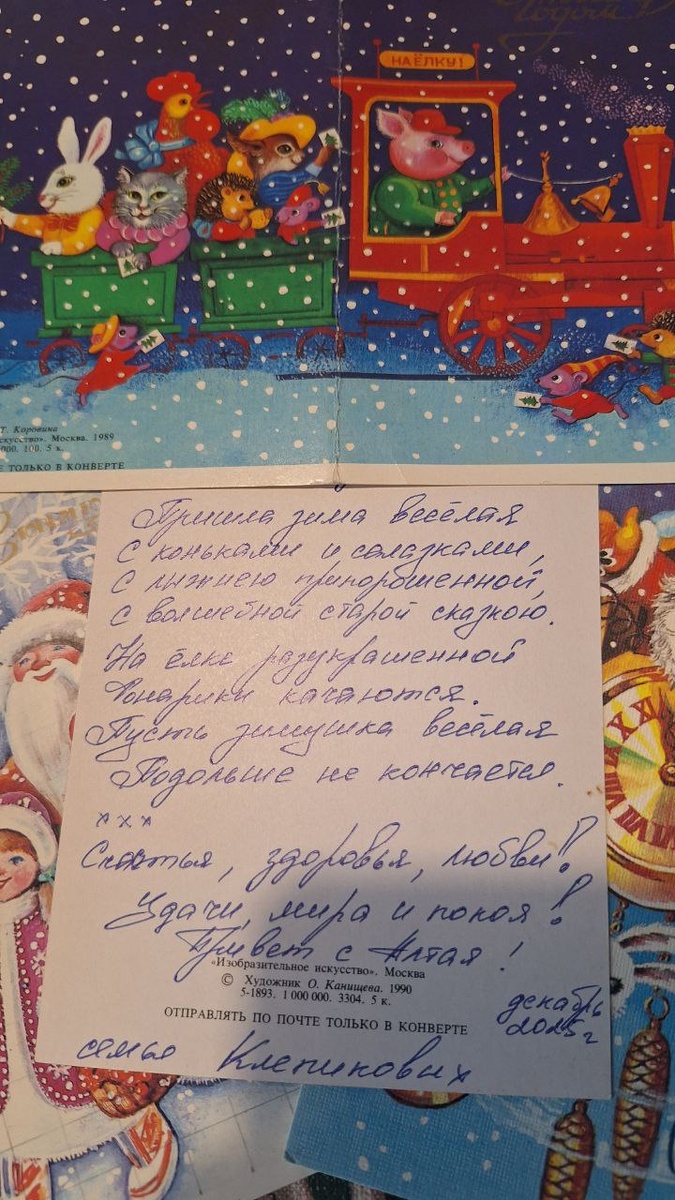 Годом!
НА ЁЛКУ!
Т. Коровина
искусство». Москва. 1989
000. 100. 5 к.
Е ТОЛЬКО В КОНВЕРТЕ
Пришла зима весёлая
С коньками и салазками,
С лыжнею припорошенной,
С волшебной старой сказкою.
На ёлке разукрашенной
Фонарики качаются.
Пусть зимушка весёлая
Подольше не кончается.
х х х
Счастья, здоровья, любви!
Удачи, мира и покоя!
Привет с Алтая!
«Изобразительное искусство». Москва
© Художник О. Канищева. 1990
5-1893. 1 000 000. 3304. 5 к.
декабрь
2025г
ОТПРАВЛЯТЬ ПО ПОЧТЕ ТОЛЬКО В КОНВЕРТЕ
семья Клепиковых